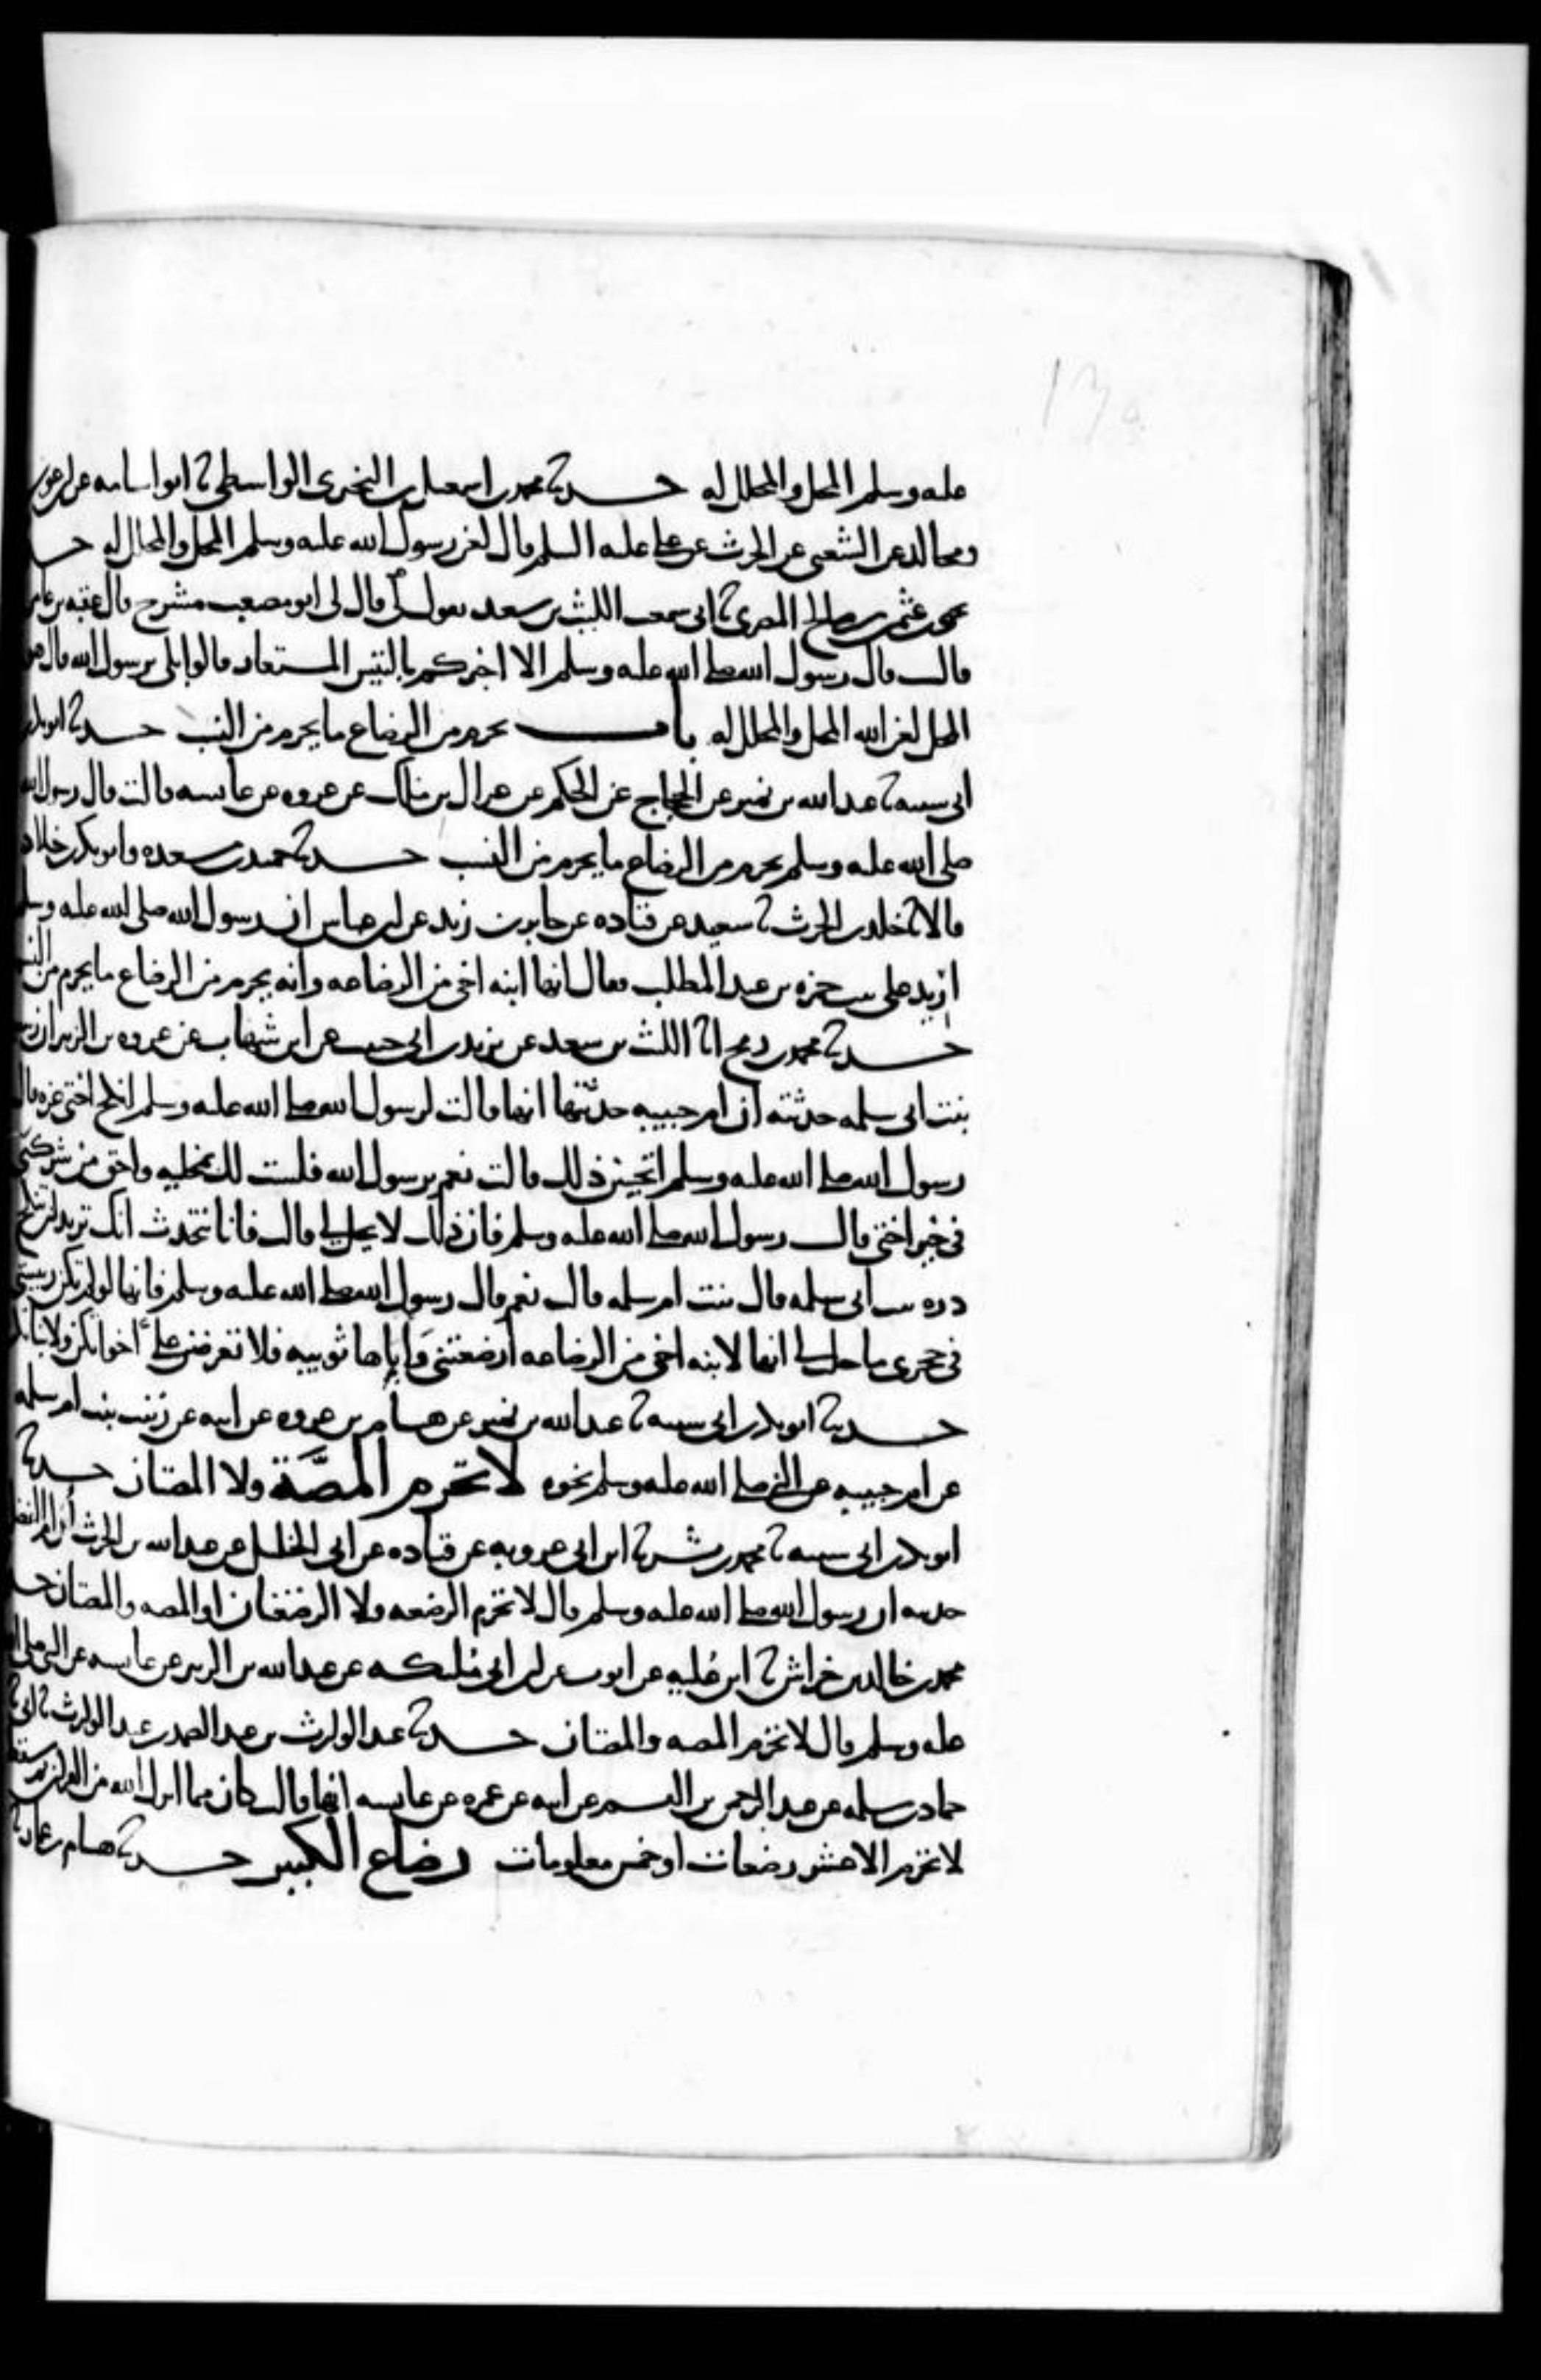 عليه وسلم المحل والمحلل له حدثنا محمد بن اسمعيل بن البختري الواسطي نا ابو اسامه عن ابن عون
ومجالد عن الشعبي عن الحرث عن علي عليه السلم قال لعن رسول الله عليه وسلم المحل والمحلل له حد
عثمن بن صالح المصري نا ابي سمعت الليث بن سعد يقول قال لي ابو مصعب مشرح قال عقبه بن عامر
قال قال رسول الله صلى الله عليه وسلم الا اخبركم بالتيس المستعار قالوا بلى يرسول الله قال هو
المحل لعن الله المحل والمحلل له باب يحرم من الرضاع ما يحرم من النسب حدثنا ابو بكر بن
ابي شيبه نا عبد الله بن نمير عن الحجاج عن الحكم عن عراك بن مالك عن عروه عن عايشه قالت قال رسول الله
صلى الله عليه وسلم يحرم من الرضاع ما يحرم من النسب حدثنا حميد بن مسعده وابو بكر بن خلاد
قالا نا خلد بن الحرث نا سعيد عن قتاده عن جابر بن زيد عن ابن عباس ان رسول الله صلى الله عليه وسلم
اريد على بنت حمزه بن عبد المطلب فقال انها ابنه اخي من الرضاعه وانه يحرم من الرضاع ما يحرم من النسب
حدثنا محمد بن رمح انا الليث بن سعد عن يزيد بن ابي حبيب عن ابن شهاب عن عروه بن الزبير ان زينب
بنت ابي سلمه حدثته ان ام حبيبه حدثتها انها قالت لرسول الله صلى الله عليه وسلم انكح اختي عزه قال
رسول الله صلى الله عليه وسلم اتحبين ذلك قالت نعم يرسول الله فلست لك بمخليه واحق من شركني
في خير اختي قال رسول الله صلى الله عليه وسلم فان ذلك لا يحل لي قالت فانا نتحدث انك تريد ان تنكح
دره بنت ابي سلمه قال بنت ام سلمه قالت نعم قال رسول الله صلى الله عليه وسلم فانها لو لم تكن ربيبتي
في حجري ما حلت لي انها لابنه اخي من الرضاعه ارضعتني وَاياها ثويبه فلا تعرضن علي اخواتكن ولا بناتكن
حدثنا ابو بكر بن ابي شيبه نا عبد الله بن نمير عن هشام بن عروه عن ابيه عن زينب بنت ام سلمه
عن ام حبيبه عن النبي صلى الله عليه وسلم نحوه لا تحرم المصَّة ولا المصتان حدثنا
ابو بكر بن ابي شيبه نا محمد بن بشر نا ابن ابي عروبه عن قتاده عن ابي الخليل عن عبد الله بن الحرث ان ام الفضل
حدثته ان رسول الله صلى الله عليه وسلم قال لا تحرم الرضعه ولا الرضعتان او المصه والمصتان حد
محمد بن خالد بن خراش نا ابن عُليه عن ايوب عن ابن ابي مُليكه عن عبد الله بن الزبير عن عايشه عن النبي صلى الله
عليه وسلم قال لا تحرم المصه والمصتان حدثنا عبد الوارث بن عبد الصمد بن عبد الوارث نا ابي نا
حماد بن سلمه عن عبد الرحمن بن القسم عن ابيه عن عمره عن عايشه انها قالت كان مما انزل الله من القران ثم سقط
لا يحرم الا عشر رضعات او خمس معلومات رضاع الكبير حدثنا هشام بن عمار نا